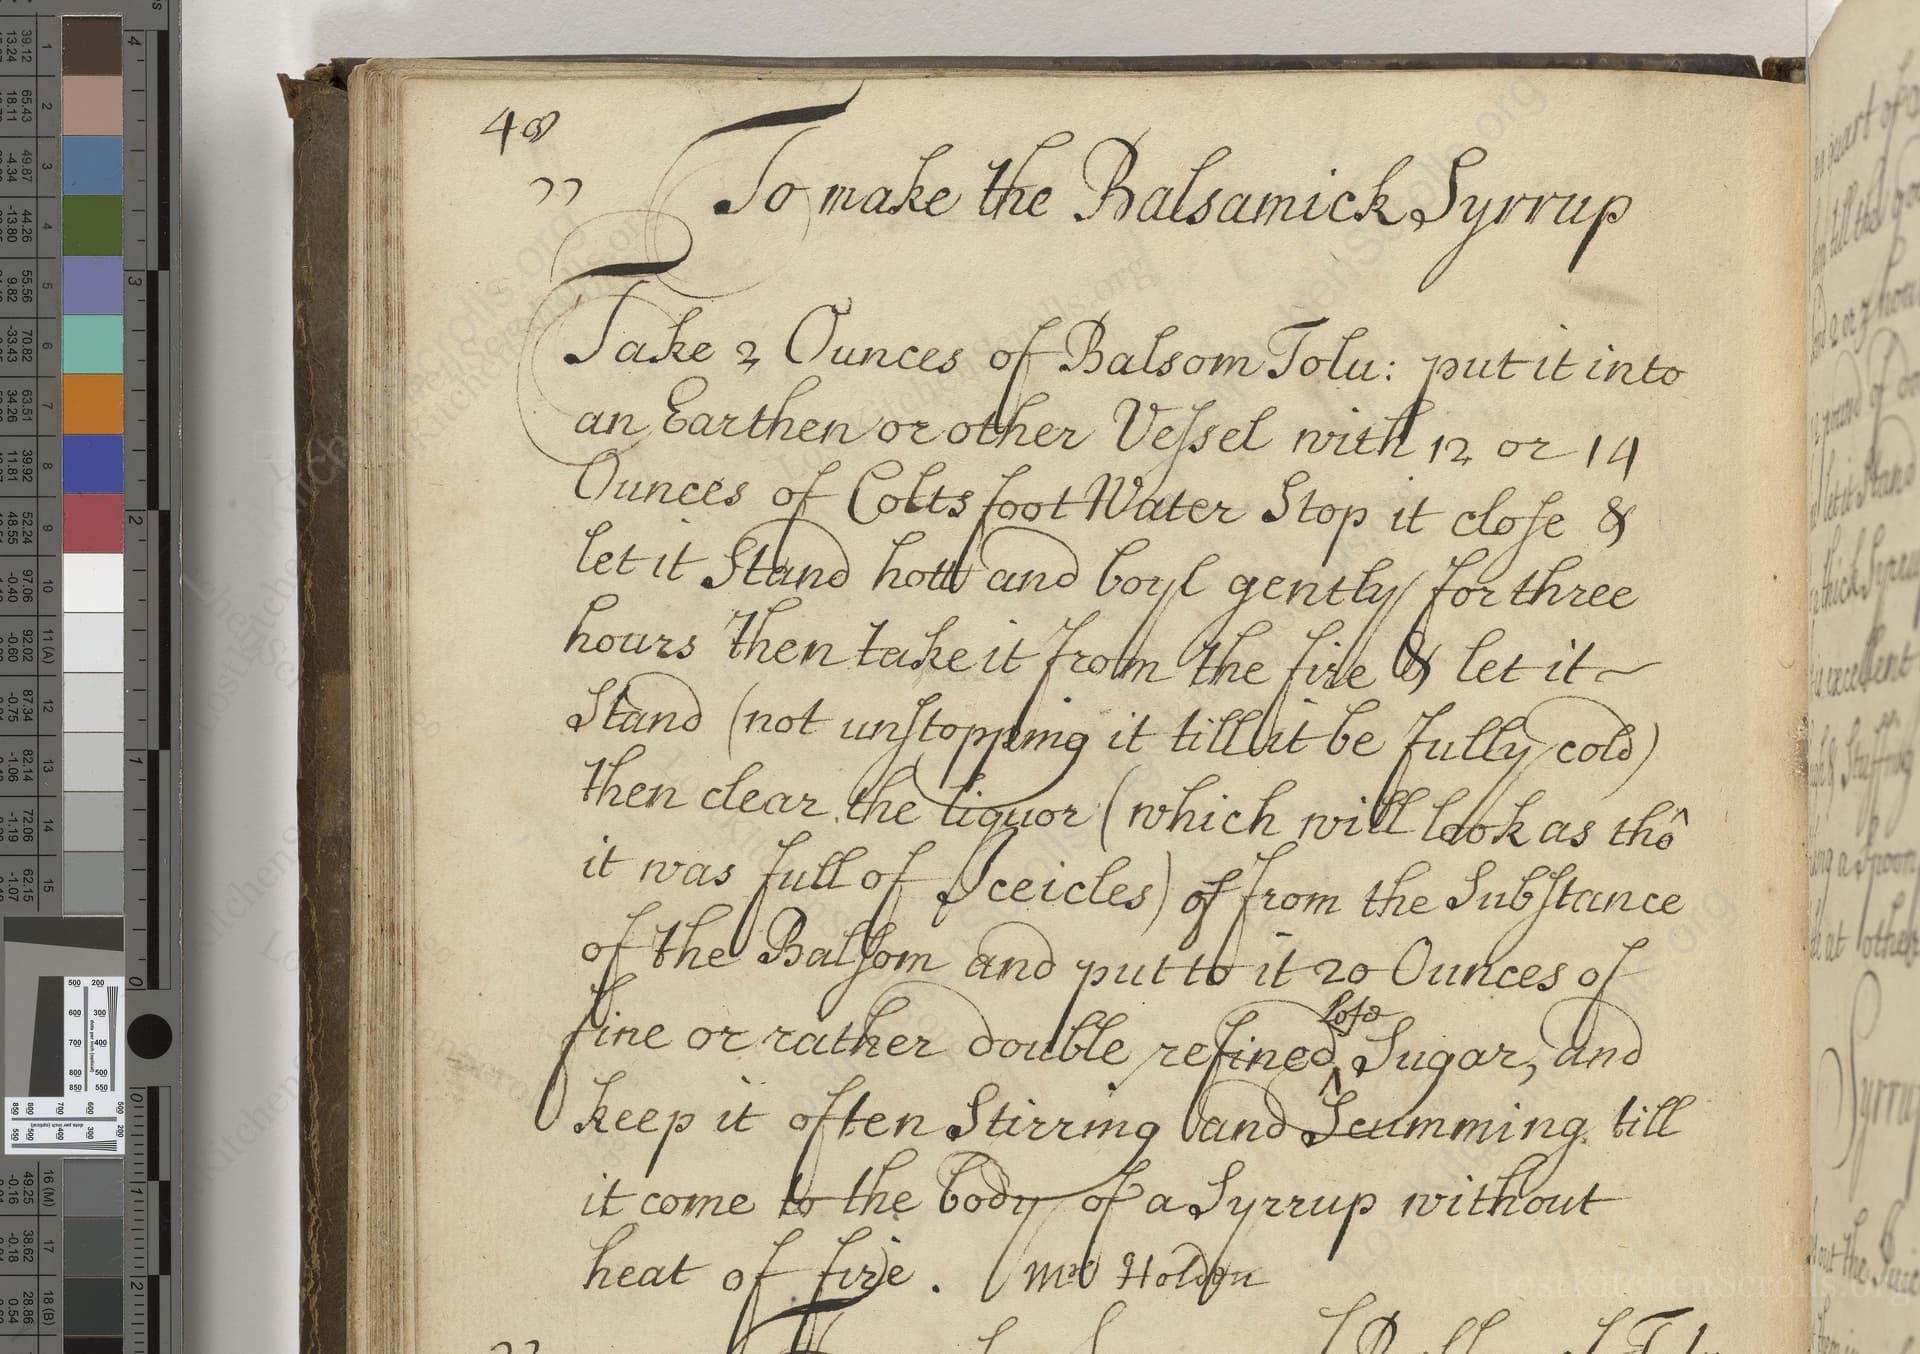 48
To make the Balsamick Syrrup
Take 2 Ounces of Balsom Tolu: put it into
an Earthen or other Veſsel with 12 or 14
Ounces of Colts foot Water Stop it cloſe &
let it Stand hott and boyl gently for three
hours then take it from the fire & let it
Stand (not unſtopping it till it be fully cold)
then clear the liquor (which will look as thô
it was full of Iceicles) of from the Subſtance
of the Balſom and put to it 20 Ounces of
fine or rather double refined Lofe Sugar, and
keep it often Stirring and Scumming till
it come to the body of a Syrrup without
heat of fire. Mrs Holden